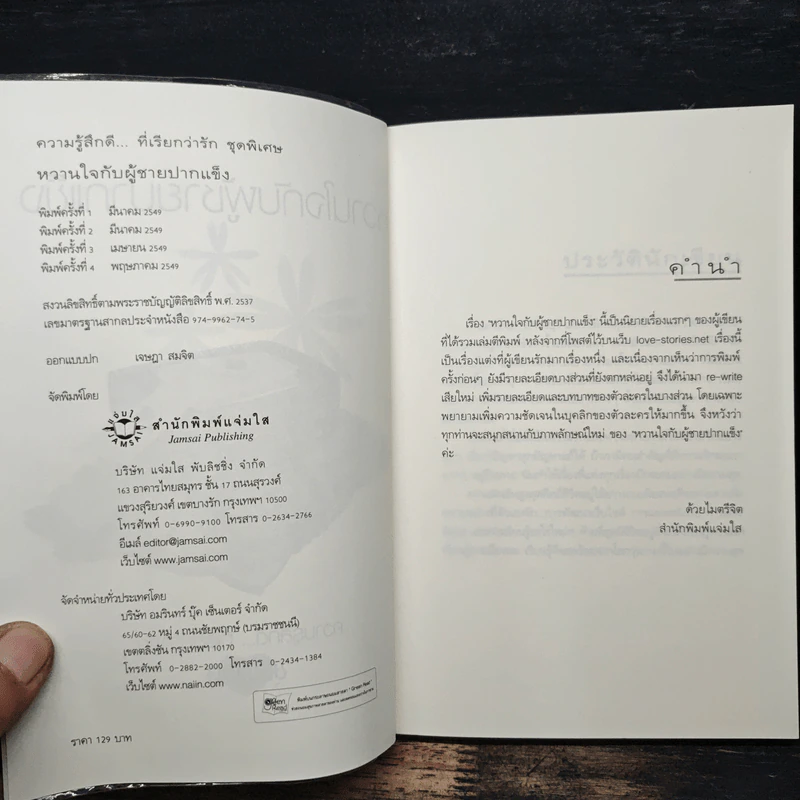 ความรู้สึกดี... ที่เรียกว่ารัก ชุดพิเศษ
หวานใจกับผู้ชายปากแข็ง
พิมพ์ครั้งที่ 1 มีนาคม 2549
พิมพ์ครั้งที่ 2 มีนาคม 2549
พิมพ์ครั้งที่ 3 เมษายน 2549
พิมพ์ครั้งที่ 4 พฤษภาคม 2549
สงวนลิขสิทธิ์ตามพระราชบัญญัติลิขสิทธิ์ พ.ศ. 2537
เลขมาตรฐานสากลประจำหนังสือ 974-9962-74-5
ออกแบบปก เจษฎา สมจิต
จัดพิมพ์โดย
แจ่มใส
JAMSAI
สำนักพิมพ์แจ่มใส
Jamsai Publishing
บริษัท แจ่มใส พับลิชชิ่ง จำกัด
163 อาคารไทยสมุทร ชั้น 17 ถนนสุรวงศ์
แขวงสุริยวงศ์ เขตบางรัก กรุงเทพฯ 10500
โทรศัพท์ 0-6990-9100 โทรสาร 0-2634-2766
อีเมล์ editor@jamsai.com
เว็บไซต์ www.jamsai.com
จัดจำหน่ายทั่วประเทศโดย
บริษัท อมรินทร์ บุ๊ค เซ็นเตอร์ จำกัด
65/60-62 หมู่ 4 ถนนชัยพฤกษ์ (บรมราชชนนี)
เขตตลิ่งชัน กรุงเทพฯ 10170
โทรศัพท์ 0-2882-2000 โทรสาร 0-2434-1384
เว็บไซต์ www.naiin.com
ราคา 129 บาท
คำนำ
เรื่อง "หวานใจกับผู้ชายปากแข็ง" นี้เป็นนิยายเรื่องแรกๆ ของผู้เขียน
ที่ได้รวมเล่มตีพิมพ์ หลังจากที่โพสต์ไว้บนเว็บ love-stories.net เรื่องนี้
เป็นเรื่องแต่งที่ผู้เขียนรักมากเรื่องหนึ่ง และเนื่องจากเห็นว่าการพิมพ์
ครั้งก่อนๆ ยังมีรายละเอียดบางส่วนที่ยังตกหล่นอยู่ จึงได้นำมา re-write
เสียใหม่ เพิ่มรายละเอียดและบทบาทของตัวละครในบางส่วน โดยเฉพาะ
พยายามเพิ่มความชัดเจนในบุคลิกของตัวละครให้มากขึ้น จึงหวังว่า
ทุกท่านจะสนุกสนานกับภาพลักษณ์ใหม่ ของ "หวานใจกับผู้ชายปากแข็ง"
ค่ะ
ด้วยไมตรีจิต
สำนักพิมพ์แจ่มใส